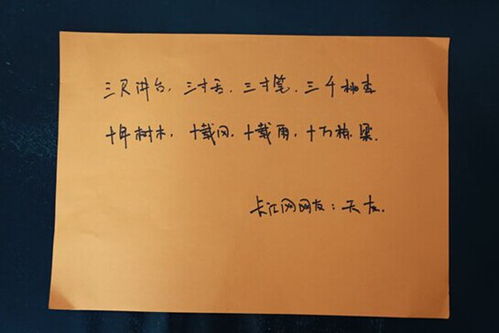 三尺讲台，三寸舌，三寸笔，三千桃李
十年树木，十载风，十载雨，十万栋梁.
长江网网友：天友.